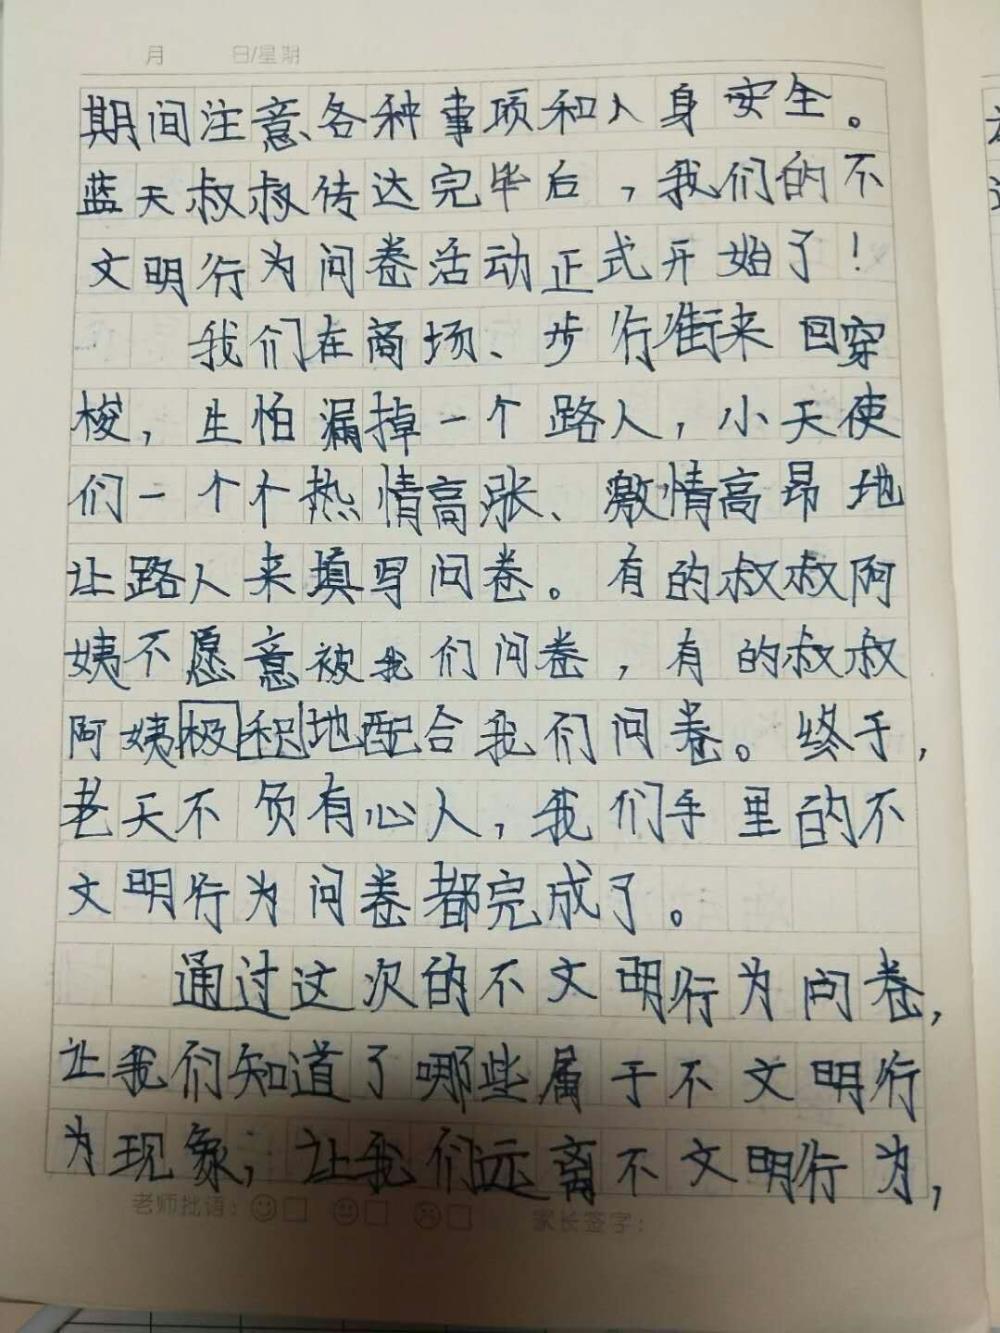 月 日/星期
期间注意各种事项和人身安全。
蓝天叔叔传达完毕后，我们的不
文明行为问卷活动正式开始了！
我们在商场、步行街来回穿
梭，生怕漏掉一个路人，小天使
们一个个热情高涨、激情高昂地
让路人来填写问卷。有的叔叔阿
姨不愿意被我们问卷，有的叔叔
阿姨极积地配合我们问卷。终于，
老天不负有心人，我们手里的不
文明行为问卷都完成了。
通过这次的不文明行为问卷，
让我们知道了哪些属于不文明行
为现象，让我们远离不文明行为，
老师批语： 家长签字：